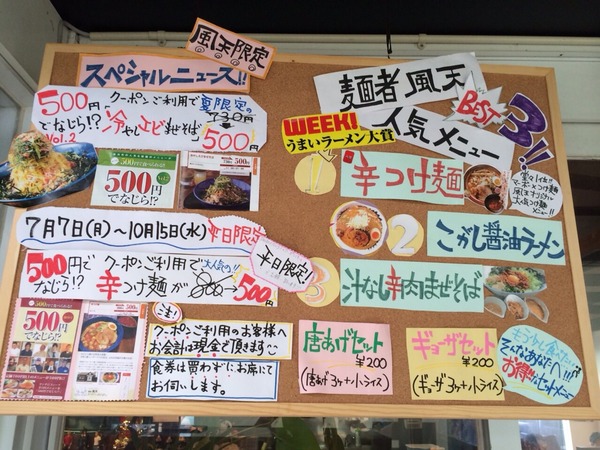 風天限定
スペシャルニュース!!
500円でなじら!?
Vol.2
クーポンご利用で夏限定の
冷やしエビまぜそば
730円
500円
500円でなじら!?
500円
でなじら!?
7月7日(月)～10月15日(水)
平日限定
平日限定!
500円でなじら!?
クーポンご利用で大人気の!!
辛つけ麺が
500円
500円
でなじら!?
注!
クーポンご利用のお客様へ
お会計は現金で頂きます
食券は買わずにお席にて
お伺いします。
麺者風天
人気メニュー
BEST
3!!
WEEK!
うまいラーメン大賞
1
辛つけ麺
2
こがし醤油ラーメン
3
汁なし辛肉まぜそば
唐あげセット
¥200
(唐あげ3ヶ+小ライス)
ギョーザセット
¥200
(ギョーザ3ヶ+小ライス)
そんなあなたへ!!
お得なセットメニュー